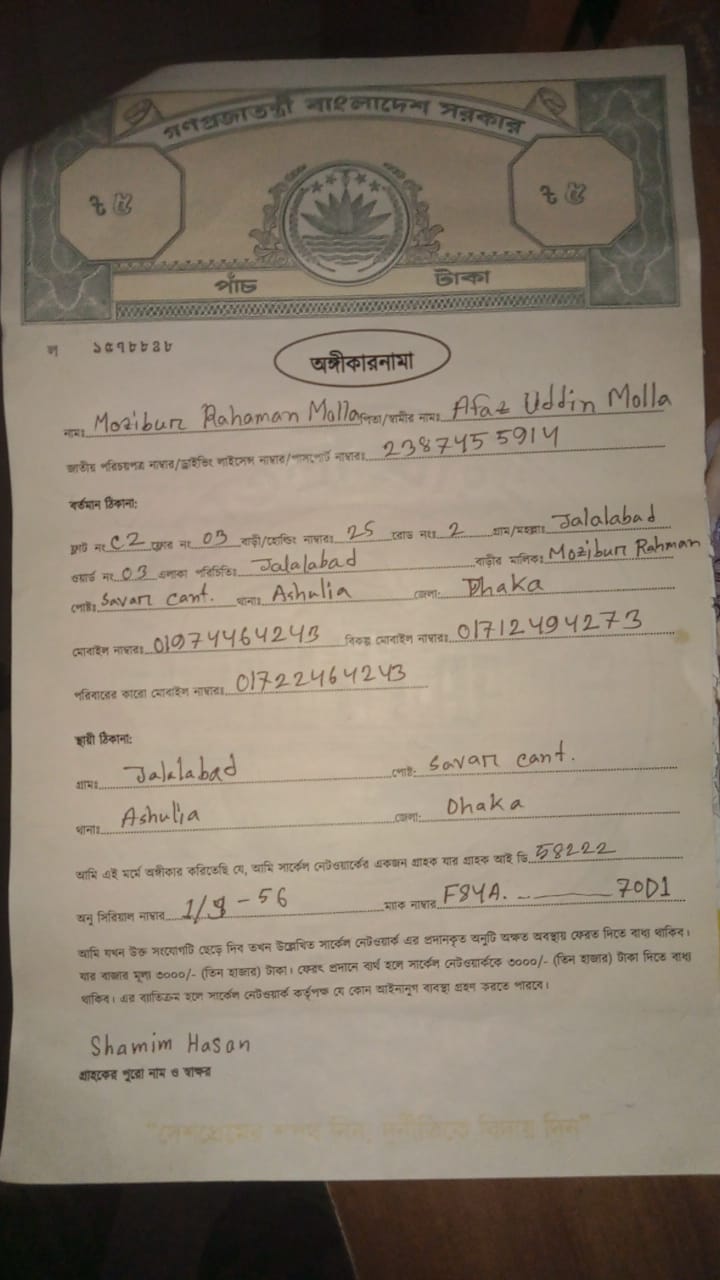 গণপ্রজাতন্ত্রী বাংলাদেশ সরকার
৳ ৫ ৳ ৫
পাঁচ টাকা
ল ১৫৭৮৮৪৮
অঙ্গীকারনামা
নামঃ Mozibur Rahaman Molla পিতা/স্বামীর নামঃ Afaz Uddin Molla
জাতীয় পরিচয়পত্র নাম্বার/ড্রাইভিং লাইসেন্স নাম্বার/পাসপোর্ট নাম্বারঃ 2387455914
বর্তমান ঠিকানা:
ফ্লাট নং C2 ফ্লোর নং 03 বাড়ী/হোল্ডিং নাম্বারঃ 25 রোড নংঃ 2 গ্রাম/মহল্লাঃ Jalalabad
ওয়ার্ড নং 03 এলাকা পরিচিতিঃ Jalalabad বাড়ীর মালিকঃ Mozibur Rahman
পোষ্টঃ Savar cant. থানাঃ Ashulia জেলা: Dhaka
মোবাইল নাম্বারঃ 01974464243 বিকল্প মোবাইল নাম্বারঃ 01712494273
পরিবারের কারো মোবাইল নাম্বারঃ 01722464243
স্থায়ী ঠিকানা:
গ্রামঃ Jalalabad পোষ্ট: Savar cant.
থানাঃ Ashulia জেলা: Dhaka
আমি এই মর্মে অঙ্গীকার করিতেছি যে, আমি সার্কেল নেটওয়ার্কের একজন গ্রাহক যার গ্রাহক আই ডি. 58222
অনু সিরিয়াল নাম্বার 1/9-56 ম্যাক নাম্বার F84A. 70D1
আমি যখন উক্ত সংযোগটি ছেড়ে দিব তখন উল্লেখিত সার্কেল নেটওয়ার্ক এর প্রদানকৃত অনুটি অক্ষত অবস্থায় ফেরত দিতে বাধ্য থাকিব।
যার বাজার মূল্য ৩০০০/- (তিন হাজার) টাকা। ফেরৎ প্রদানে ব্যর্থ হলে সার্কেল নেটওয়ার্ককে ৩০০০/- (তিন হাজার) টাকা দিতে বাধ্য
থাকিব। এর ব্যতিক্রম হলে সার্কেল নেটওয়ার্ক কর্তৃপক্ষ যে কোন আইনানুগ ব্যবস্থা গ্রহণ করতে পারবে।
Shamim Hasan
গ্রাহকের পুরো নাম ও স্বাক্ষর
"দেশপ্রেমের শপথ নিন, দুর্নীতিকে বিদায় দিন"